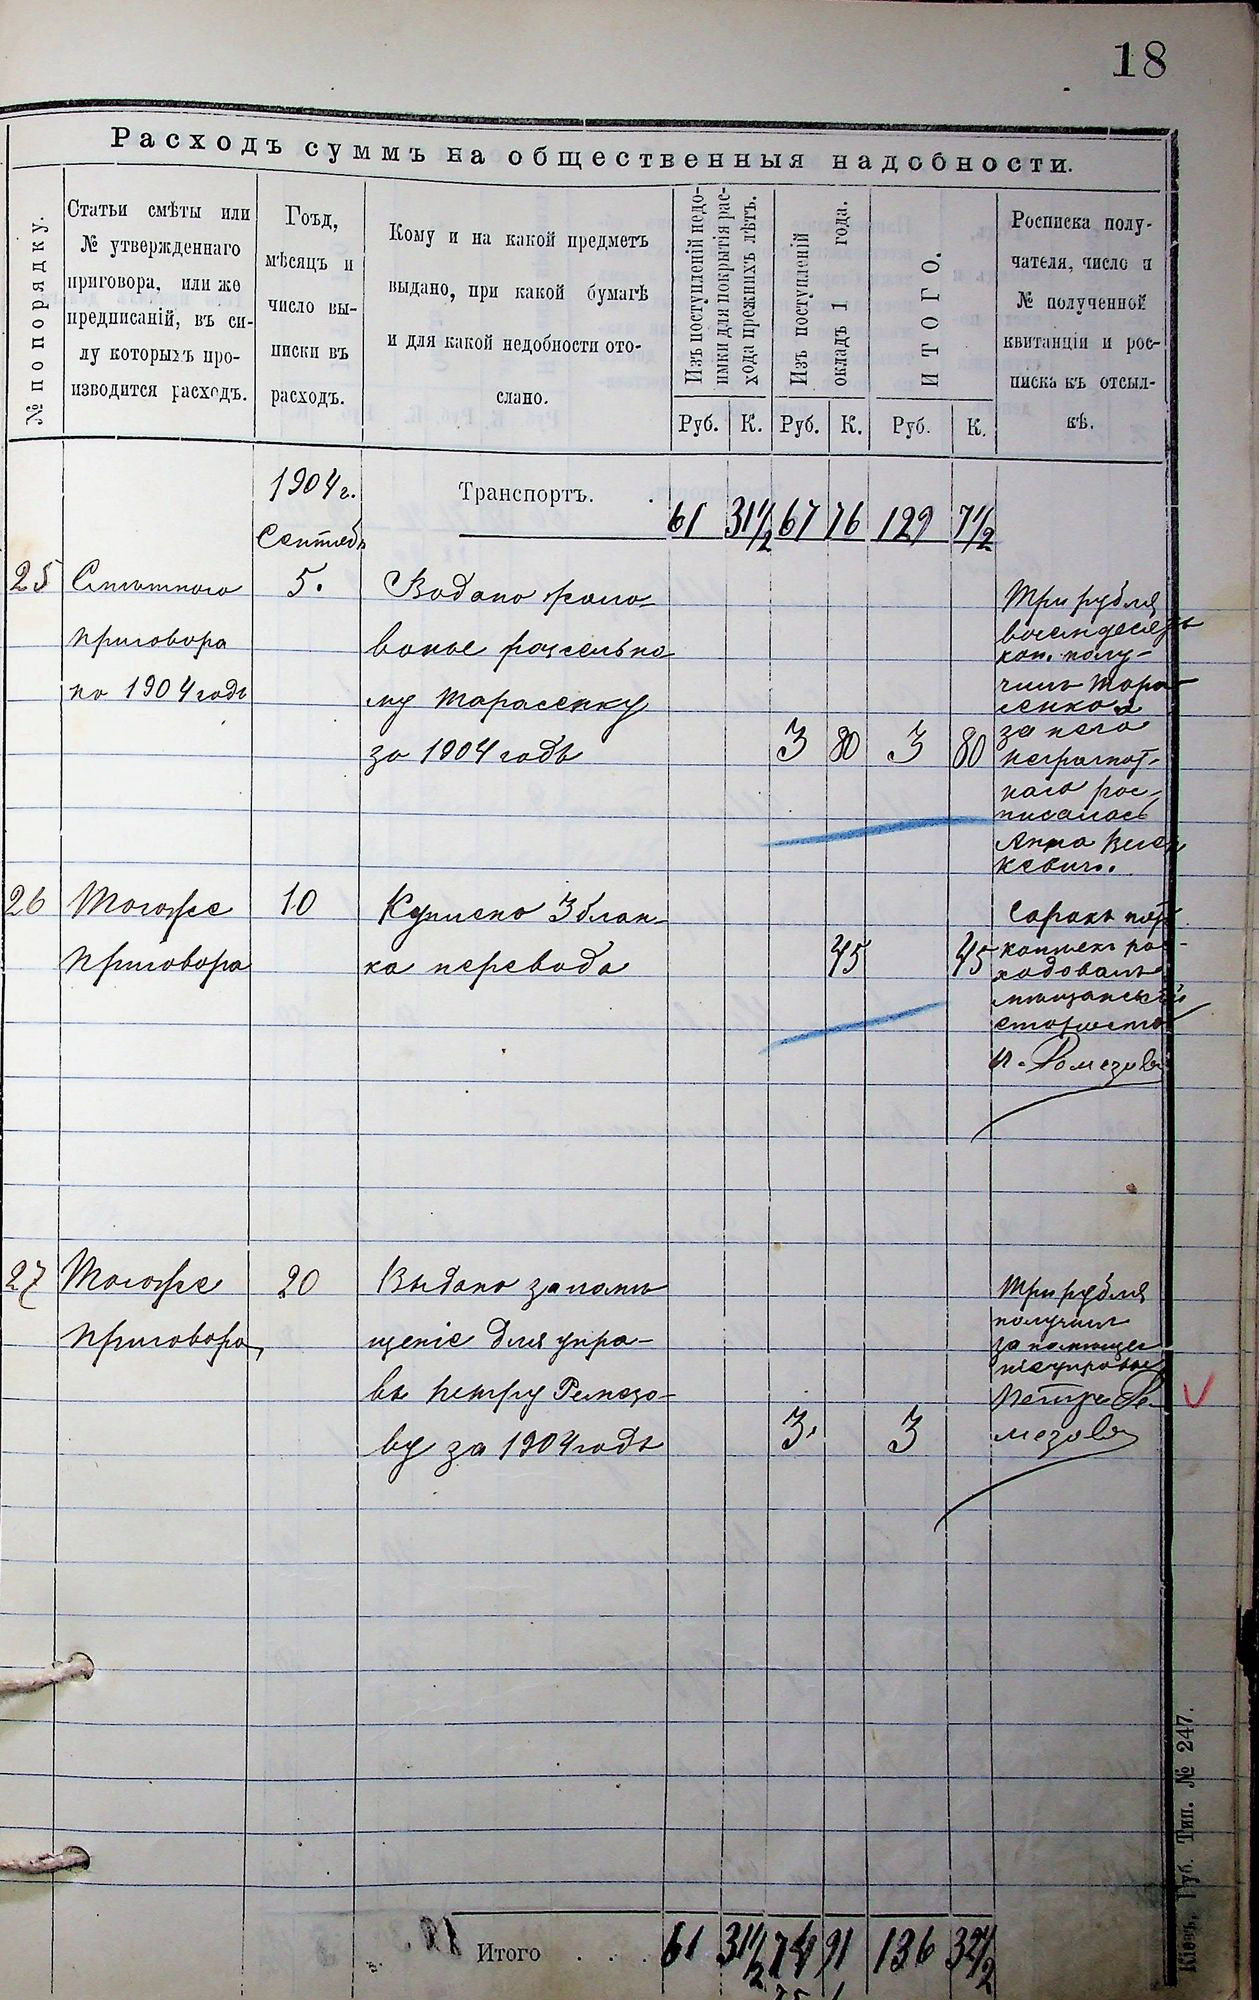 18
Расходъ суммъ на общественныя надобности.
№ по порядку.
Статьи смѣты или
№ утвержденнаго
приговора, или же
предписаній, въ си-
лу которыхъ про-
изводится расходъ.
Гоъд,
мѣсяцъ и
число вы-
писки въ
расходъ.
Кому и на какой предметъ
выдано, при какой бумагѣ
и для какой недобности ото-
слано.
Изъ поступленій недо-
имки для покрытія рас-
хода прежнихъ лѣтъ.
Изъ поступленій
окладъ 1 года.
ИТОГО.
Росписка полу-
чателя, число и
№ полученной
квитанціи и рос-
писка къ отсыл-
кѣ.
Руб. К. Руб. К. Руб. К.
1904 г.
Транспортъ.
61 31 1/2 67 76 129 7 1/2
25
приговора
по 1904 годъ
5.
му Тарасенку
за 1904 годъ
3 80 3 80
Три рубля
восемдесятъ
коп. полу-
чилъ Тара-
сенко а
за него
неграмот-
наго рос-
писалась
Анна
26 Тогоже
приговора
10
Куплено 3 блан-
ка перевода
45 45
Сорокъ пять
копѣекъ рас-
ходовалъ
мѣщанскій
староста
27 Тогоже
приговора
20
Выдано за помѣ-
щеніе для упра-
вы Петру Ремезо-
ву за 1904 годъ
3. 3
Три рубля
получилъ
за помѣще-
ніе управы
Петръ Ре-
мезовъ
Итого 61 31 1/2 74 91 136 32 1/2
Кіевъ, Губ. Тип. № 247.